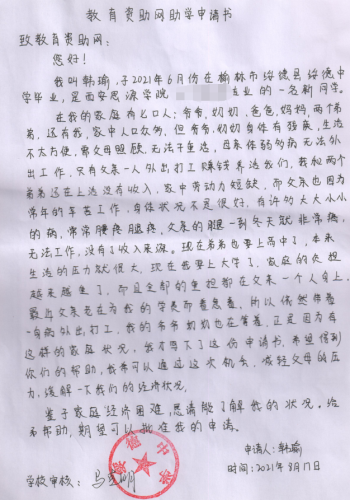 教育资助网助学申请书
致教育资助网:
您好!
我叫韩瑜,于2021年6月份在榆林市绥德县绥德中
学毕业,是西安思源学院 专业的一名新同学。
在我的家庭有七口人:爷爷,奶奶,爸爸,妈妈,两个弟
弟,还有我,家中人口众多,但爷爷,奶奶身体有残疾,生活
不太方便,需父母照顾,无法干重活,母亲体弱多病无法外
出工作,只有父亲一人外出打工赚钱养活我们,我和两个
弟弟还在上学没有收入,家中劳动力短缺,而父亲也因为
常年的辛苦工作,身体状况不是很好,有许多大大小小
的病,常常腰疼腿疼,父亲的腿一到冬天就非常痛,
无法工作,没有了收入来源。现在弟弟也要上高中了,本来
生活的压力就很大,现在我要上大学了,家庭的负担
越来越重了,而且全部的重担都在父亲一个人身上,
最近父亲老在为我的学费而着急着,所以偶然带着
一身病外出打工,我的爷爷奶奶也在等着,正是因为有
这样的家庭状况,我才写下了这份申请书,希望得到
你们的帮助,我希可以通过这次机会,减轻父母的压
力,缓解一下我们的经济状况,
鉴于家庭经济困难,恳请能了解我的状况。给
予帮助,期望可以批准我的申请。
申请人:韩瑜
学校审核: 时间:2021年8月17日